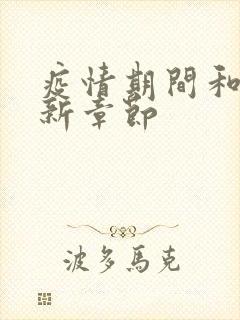 疫情期間和
新章節
波多馬克